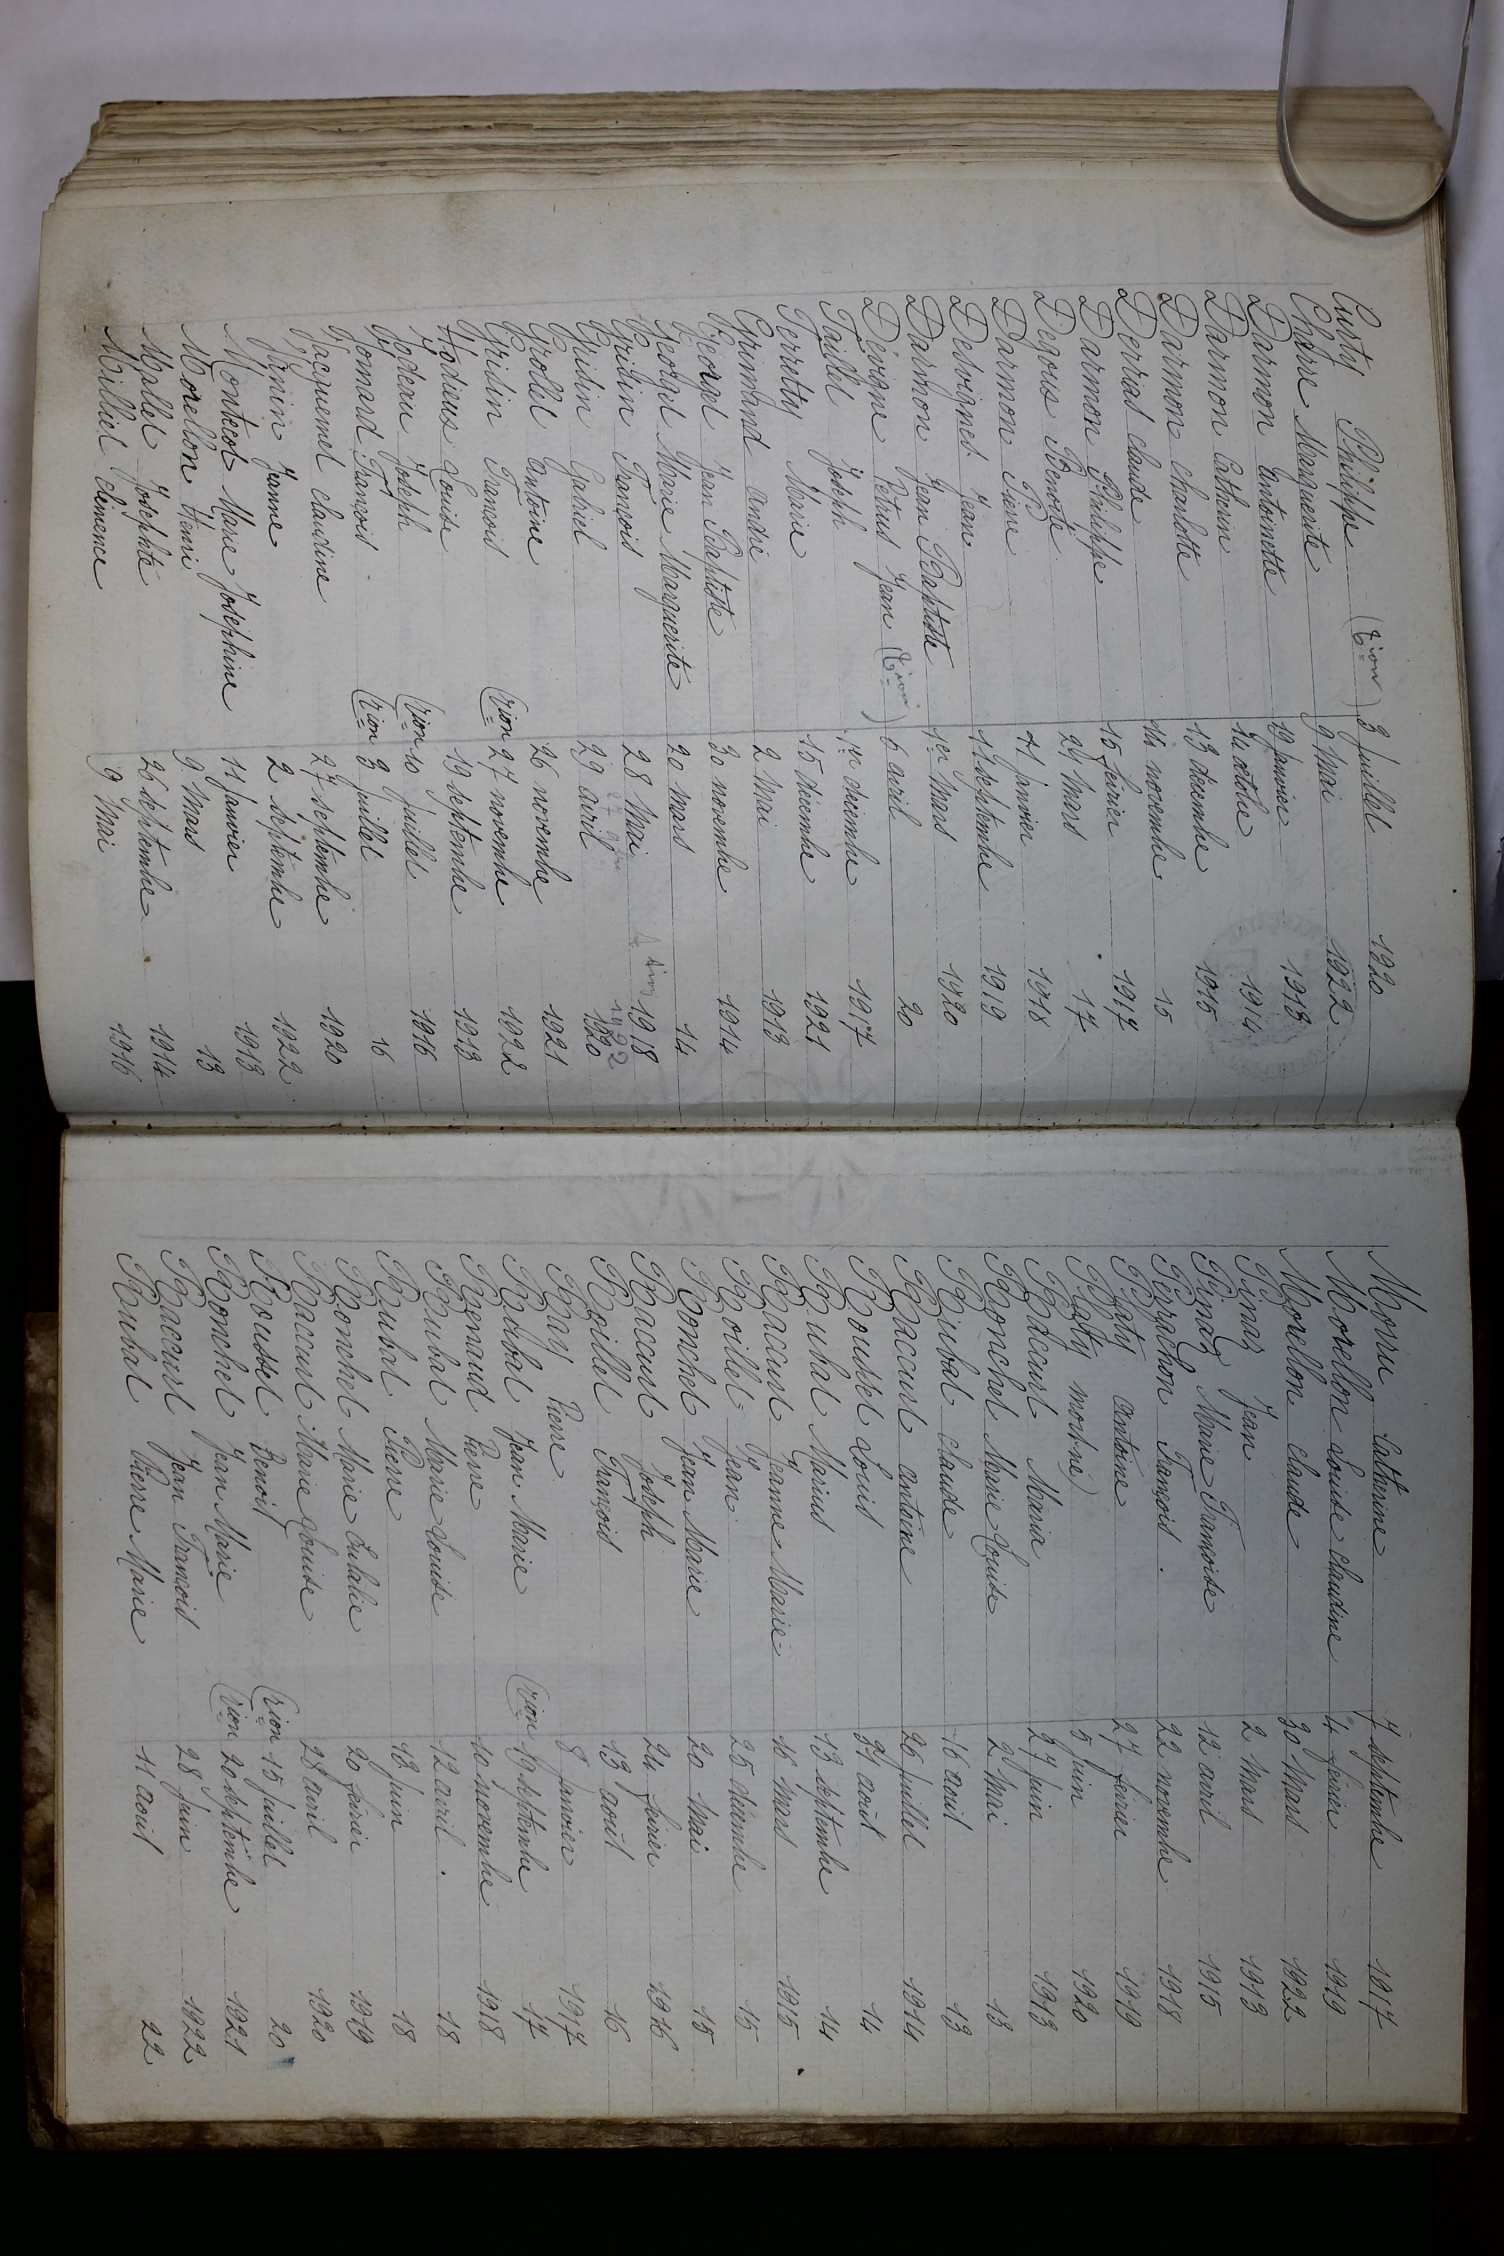 Custy Philippe (Tion) 3 juillet 1920
Charre Marguerite 9 Mai 1922
Darmon Antoinette 19 janvier 1913
Darmon Catherine 14 octobre 1914
Darmon Charlotte 13 décembre 1915
Derrias claude 14 novembre 15
Darmon Philippe 15 février 1917
Degous Benoite 24 Mars 17
Darmon Pierre 11 janvier 1918
Desvignes Jean 11 septembre 1919
Darmon Jean Baptiste 1er Mars 1920
Devigne Petrus Jean (Tion) 6 avril 20
Faillet Joseph 1er décembre 1917
Ferretty Marie 15 décembre 1921
Grimand andré 2 Mai 1913
Georgel Jean Baptiste 30 novembre 1914
Georget Marie Marguerite 20 mars 14
Gridin François 28 Mai 1918
Gridin Gabriel 29 avril 1920
1922
Grollet Antoine 26 novembre 1921
Gridin François (Tion 27 novembre 1922
Hodieux Louise 19 septembre 1913
Jodeau Joseph (Tion 10 juillet 1916
Jomard François (Tion 3 juillet 16
Jacquemet claudine 27 septembre 1920
Janin Jeanne 2 septembre 1922
Montecot Marie Josephine 11 janvier 1913
Morellon Henri 9 Mars 13
Mallet Josephte 26 septembre 1914
Milliet Clémence 9 Mai 1916
Morru Catherine 7 septembre 1917
Morellon Louise claudine 4 février 1919
Morellon claude 30 Mars 1922
Pinay Jean 2 Mars 1913
Pinay Marie Françoise 12 avril 1915
Perrachon François. 22 novembre 1918
Paty antoine 27 février 1919
Paty mort-né) 5 juin 1920
Raccurt Maria 27 juin 1913
Ronchet Marie Louise 2 Mai 13
Rubat claude 16 août 13
Raccurt antoine 26 juillet 1914
Rousset Louis 31 août 14
Rubat Marius 13 septembre 14
Raccurt Jeanne Marie 16 Mars 1915
Roillet Jean 25 décembre 15
Ronchet Jean Marie 20 Mai 15
Raccurt Joseph 24 février 1916
Roillet François 13 août 16
Ray Pierre 8 janvier 1917
Rubat Jean Marie (Tion 19 septembre 17
Renaud Pierre 10 novembre 1918
Rubat Marie Louise 12 avril. 18
Rubat Pierre 18 juin 18
Ronchet Marie Eulalie 20 février 1919
Raccurt Marie Louise 28 avril 1920
Rousset Benoit (Tion 15 juillet 20
Romchet Jean Marie (Tion 20 septembre 1921
Raccurt Jean François 28 juin 1922
Rubat Pierre Marie 11 août 22